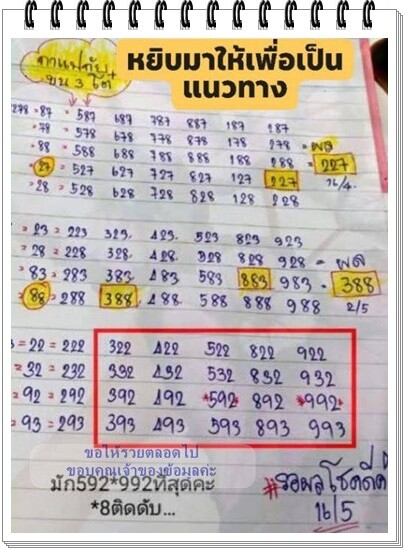 หยิบมาให้เพื่อเป็น
แนวทาง
บน 3 ตัว
278 = 87 = 587 687 787 887 187 287
78 = 578 678 778 878 178 278 = ผล
88 = 588 688 788 888 188 288 = 227
27 = 527 627 727 827 127 227 16/4
28 = 528 628 728 828 128 228
= 23 = 223 323 423 523 823 923
= 28 = 228 328 428 528 828 928 = ผล
= 83 = 283 383 483 583 883 983 = 388
= 88 = 288 388 488 588 888 988 2/5
= 22 = 222 322 422 522 822 922
= 32 = 232 332 432 532 832 932
= 92 = 292 392 492 *592 892 *992*
= 93 = 293 393 493 593 893 993
ขอให้รวยตลอดไป
ขอบคุณเจ้าของข้อมูลค่ะ
มัก592*992ที่สุดคะ
*8ติดดับ...
#รอผลโชคดีค่
16/5